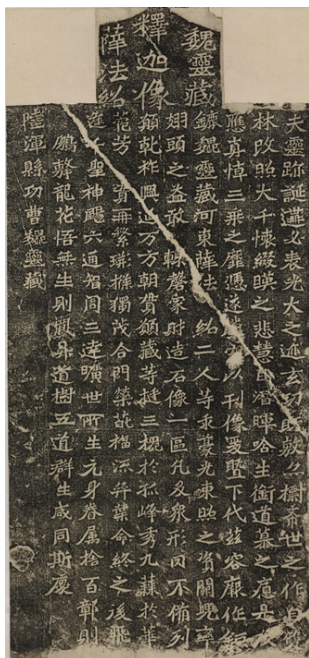 魏靈藏
釋迦像
薛法紹
夫靈跡誕遘必表光大之迹玄功既敷亦樹希世之作自
林改照大千懷綴暎之悲慧日潛暉唅生銜道慕之痯是
應真悼三乘之靡憑遂以刊像爰暨下代茲容厥作鉅
鹿魏靈藏河東薛法紹二人等求豪光東照之資闕兜率
翅頭之益敢輒罄家財造石像一區凡及衆形罔不備列
願乾祚興延万方朝貫願藏等挺三槐於孤峰秀九蕀於華
菀芳實再繁荊條獨茂合門榮葩福流弈葉命終之後飛
逢聖神颺六通智周三達曠世所生元身眷屬捨百鄣則
鵬擊龍花悟無生則鳳昇道樹五道群生咸同斯慶
陸渾縣功曹魏靈藏